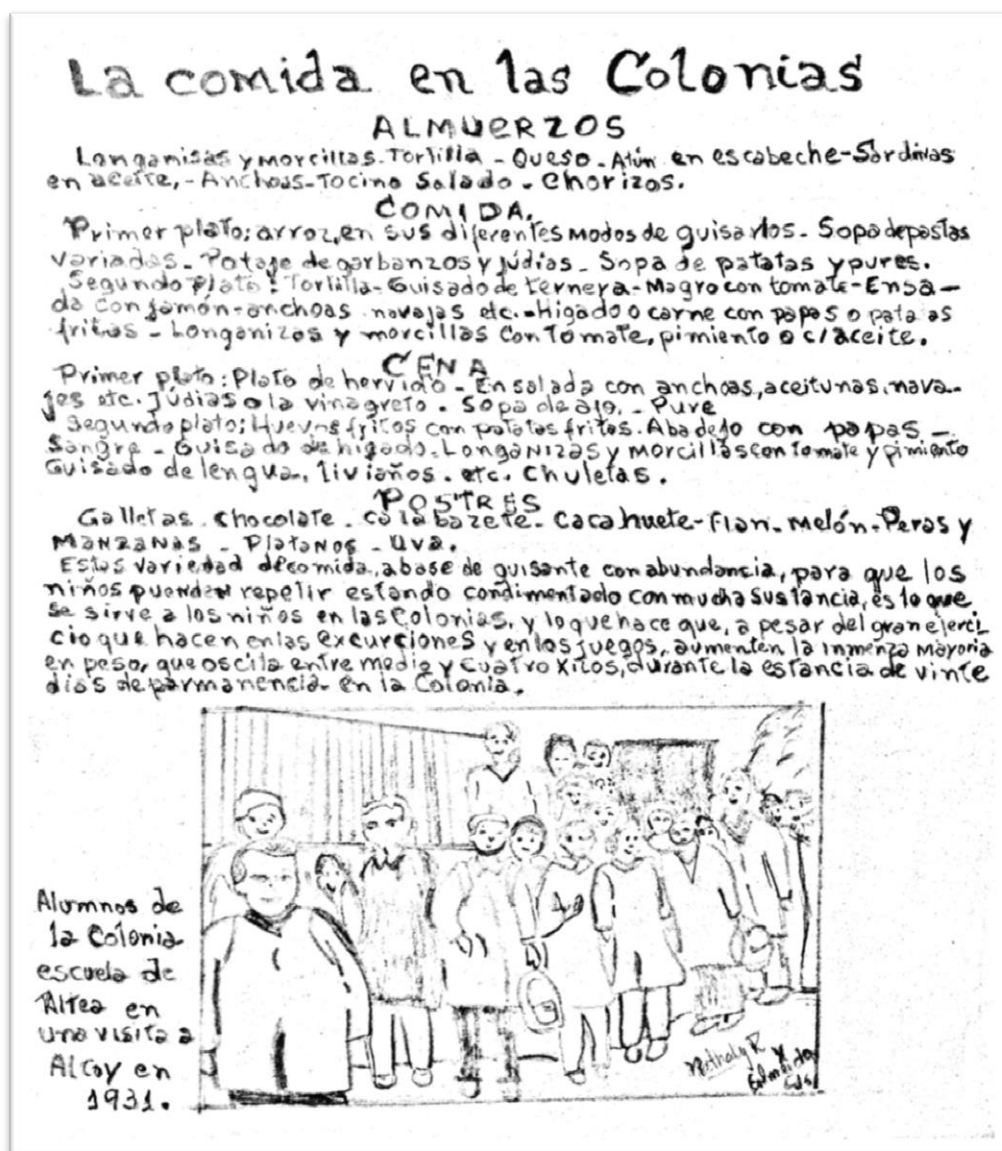 La comida en las Colonias
ALMUERZOS
Longanisas y morcillas. Tortilla - Queso - Atún en escabeche - Sardinas
en aceite, - Anchoas - Tocino Salado - Chorizos.
COMIDA.
Primer plato: arroz, en sus diferentes modos de guisarlos - Sopa de pastas
variadas - Potaje de garbanzos y júdias - Sopa de patatas y pures.
Segundo plato: Tortilla - Guisado de ternera - Magro con tomate - Ensa-
da con jamón - anchoas navajas etc. - Higado o carne con papas o pata as
fritas - Longanizas y morcillas con tomate, pimiento o c/aceite.
CENA
Primer plato: Plato de hervido - Ensalada con anchoas, aceitunas, nava-
jas etc. Júdias a la vinagreta. Sopa de ajo. - Pure
Segundo plato: Huevos fritos con patatas fritas. Abadejo con papas -
Sangre - Guisado de higado. Longanizas y morcillas con tomate y pimiento
Guisado de lengua, livianos. etc. Chuletas.
POSTRES
Galletas. Chocolate. calabazete. Cacahuete - Flan - Melón - Peras y
Manzanas - Platanos - Uva.
Estas variedad de comida, a base de guisante con abundancia, para que los
niños puendan repetir estando condimentado con mucha sustancia, es lo que
se sirve a los niños en las Colonias, y lo que hace que, a pesar del gran ejerci
cio que hacen en las excurciones y en los juegos, aumenten la inmenza mayoria
en peso, que oscila entre media y cuatro xilos, durante la estancia de vinte
dias de parmanencia en la Colonia.
Alumnos de
la Colonia
escuela de
Altea en
una visita a
Alcoy en
1931.